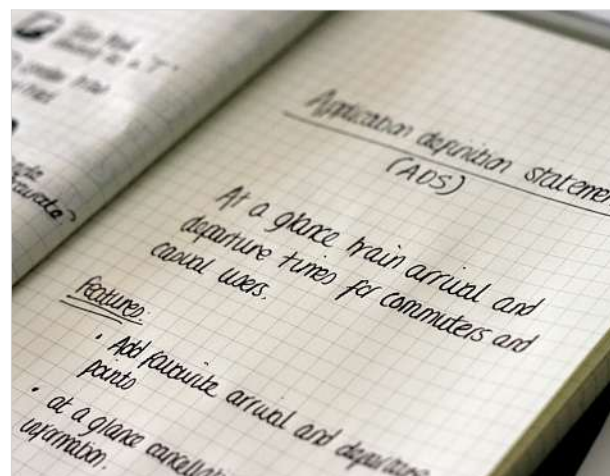 as a "T"
Application definition statement
(ADS)
At a glance train arrival and
departure times for commuters and
casual users.
Features.
• Add favourite arrival and departure
points
• at a glance cancellation
information.